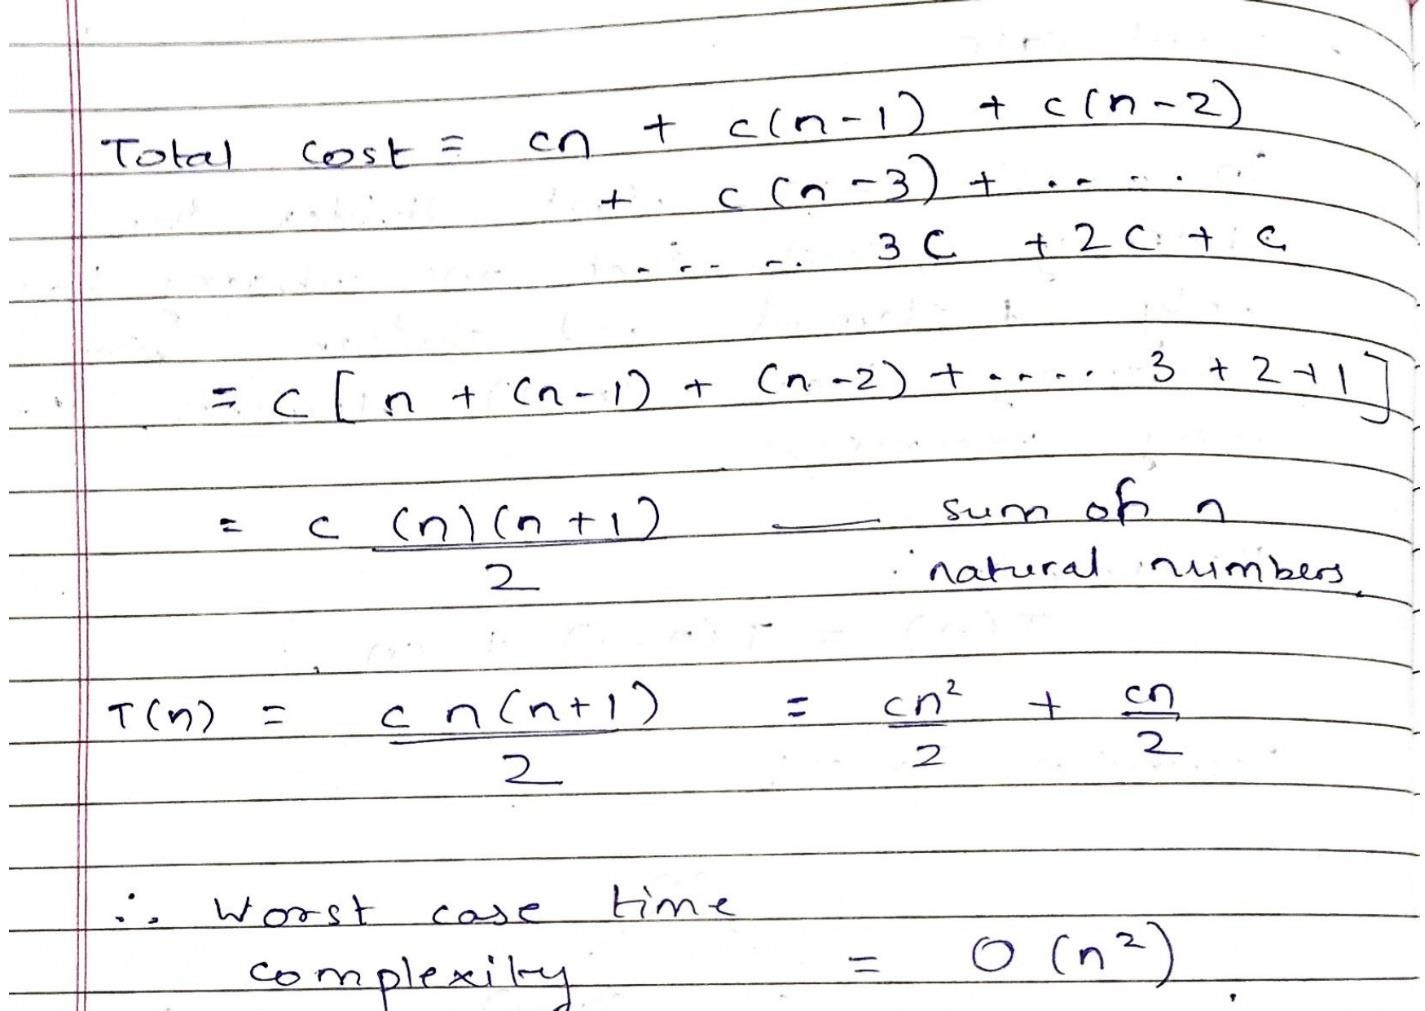 Total cost = cn + c(n-1) + c(n-2)
+ c(n-3) + .....
..... 3c + 2c + c
= c[n + (n-1) + (n-2) + ..... 3 + 2 + 1]
= c (n)(n+1)/2 — sum of n
natural numbers
T(n) = cn(n+1)/2 = cn²/2 + cn/2
∴ Worst case time
complexity = O(n²).